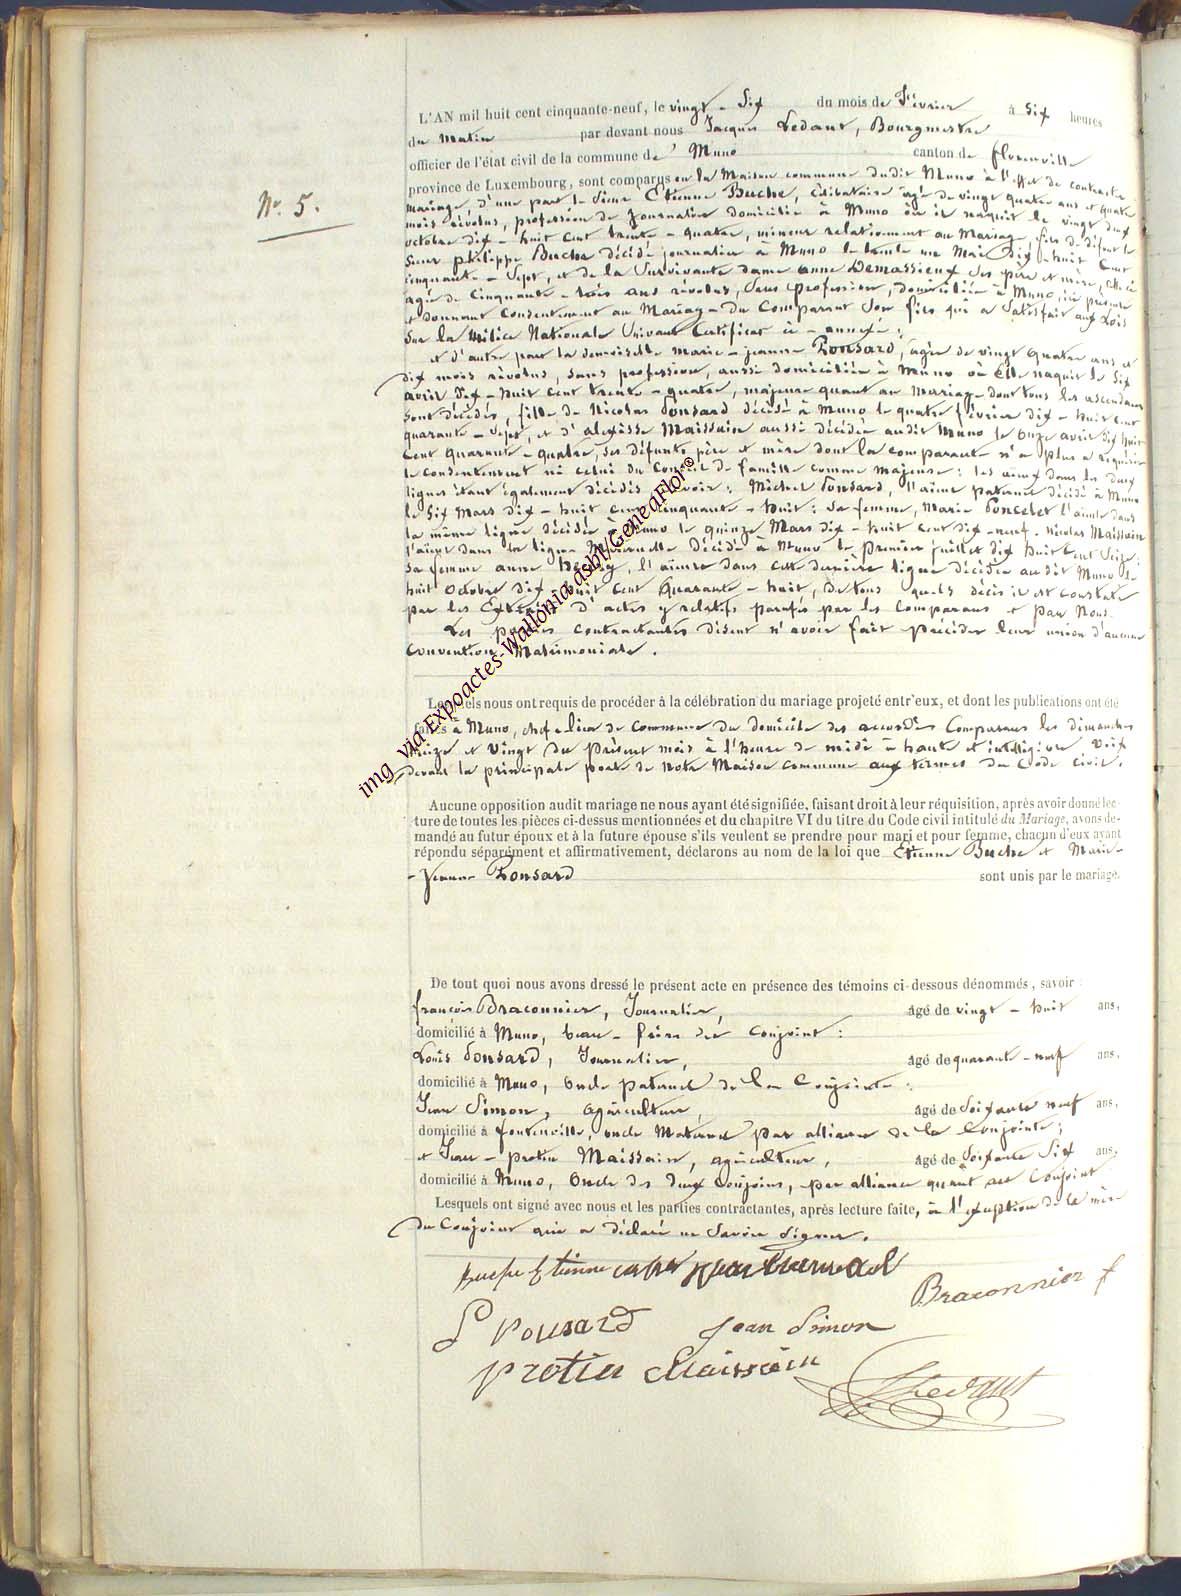 N.° 5.
L'AN mil huit cent cinquante-neuf, le vingt-six du mois de Février à six heures
du matin par devant nous Jacques Ledant, Bourgmestre
officier de l'état civil de la commune de Muno canton de florenville
province de Luxembourg, sont comparus en la Maison commune dudit Muno à l'effet de contracter
mariage, d'une part le sieur Etienne Buche, célibataire âgé de vingt quatre ans et quatre
mois révolus, profession de journalier domicilié à Muno où il naquit le vingt deux
octobre dix-huit cent trente-quatre, mineur relativement au Mariage, fils de défunt le
sieur philippe Buche décédé journalier à Muno le trente un Mai dix-huit cent
cinquante-sept, et de la survivante dame anne Demassieux ses père et mère, elle ci
agée de cinquante-trois ans révolus, sans profession, domiciliée à Muno, ici présente
et donnant consentement au Mariage du Comparant son fils qui a satisfait aux Lois
sur la Milice Nationale suivant certificat ci-annexé;
et d'autre part la demoiselle Marie-jeanne Ponsard, âgée de vingt quatre ans et
dix mois révolus, sans profession, aussi domiciliée à Muno où elle naquit le six
avril dix-huit cent trente-quatre, majeure quant au mariage dont tous les ascendans
sont décédés, fille de Nicolas Ponsard décédé à Muno le quatre février dix-huit cent
quarante-sept, et d' Maissuin aussi décédée audit Muno le onze avril dix huit
cent quarante-quatre, ses défunts père et mère dont la comparante n'a plus à requérir
le consentement ni celui du Conseil de famille comme majeure: les aïeux dans les deux
lignes étant également décédés savoir: Michel Ponsard, l'aïeul paternel décédé à Muno
le six Mars dix-huit cent cinquante-huit: sa femme, Marie Poncelet l'aïeule dans
la même ligne décédée à Muno le quinze Mars dix-huit cent dix-neuf. Nicolas Maissuin
l'aïeul dans la ligne Maternelle décédé à Muno le premier juillet dix huit cent seize;
sa femme anne l'aïeule dans cette dernière ligne décédée audit Muno le
huit octobre dix huit cent quarante-huit, de tous quels décès il est constaté
par les Extraits d'actes y relatifs parafés par les comparans et par Nous.
Les parties contractantes disent n'avoir fait précéder leur union d'aucune
convention Matrimoniale.
Lesquels nous ont requis de procéder à la célébration du mariage projeté entr'eux, et dont les publications ont été
faites à Muno, chef lieu de commune du domicile des accordés Comparans les dimanches
treize et vingt du présent mois à l'heure de midi à haute et intelligible voix
devant la principale porte de notre Maison commune aux termes du Code civil.
Aucune opposition audit mariage ne nous ayant été signifiée, faisant droit à leur réquisition, après avoir donné lec-
ture de toutes les pièces ci-dessus mentionnées et du chapitre VI du titre du Code civil intitulé du Mariage, avons de-
mandé au futur époux et à la future épouse s'ils veulent se prendre pour mari et pour femme, chacun d'eux ayant
répondu séparément et affirmativement, déclarons au nom de la loi que Etienne Buche et Marie-
-Jeanne Ponsard sont unis par le mariage.
De tout quoi nous avons dressé le présent acte en présence des témoins ci-dessous dénommés, savoir:
françois Braconnier, Journalier, âgé de vingt-huit ans,
domicilié à Muno, beau-frère du Conjoint:
Louis Ponsard, Journalier, âgé de quarante-neuf ans,
domicilié à Muno, oncle paternel de la Conjointe:
Jean Simon, agriculteur, âgé de soixante neuf ans,
domicilié à fontenoille, oncle Maternel par alliance de la Conjointe;
et Jean-protin Maissuin, agriculteur, âgé de soixante six ans,
domicilié à Muno, oncle des deux conjoins, par alliance quant au Conjoint
Lesquels ont signé avec nous et les parties contractantes, après lecture faite, à l'exception de la mère
du Conjoint qui a déclaré ne savoir signer.
Buche Etienne
Braconnier f
L Ponsard Jean Simon
protin Maissuin
J Ledant
img via Expoactes-Wallonia asbl/GeneaFlor®